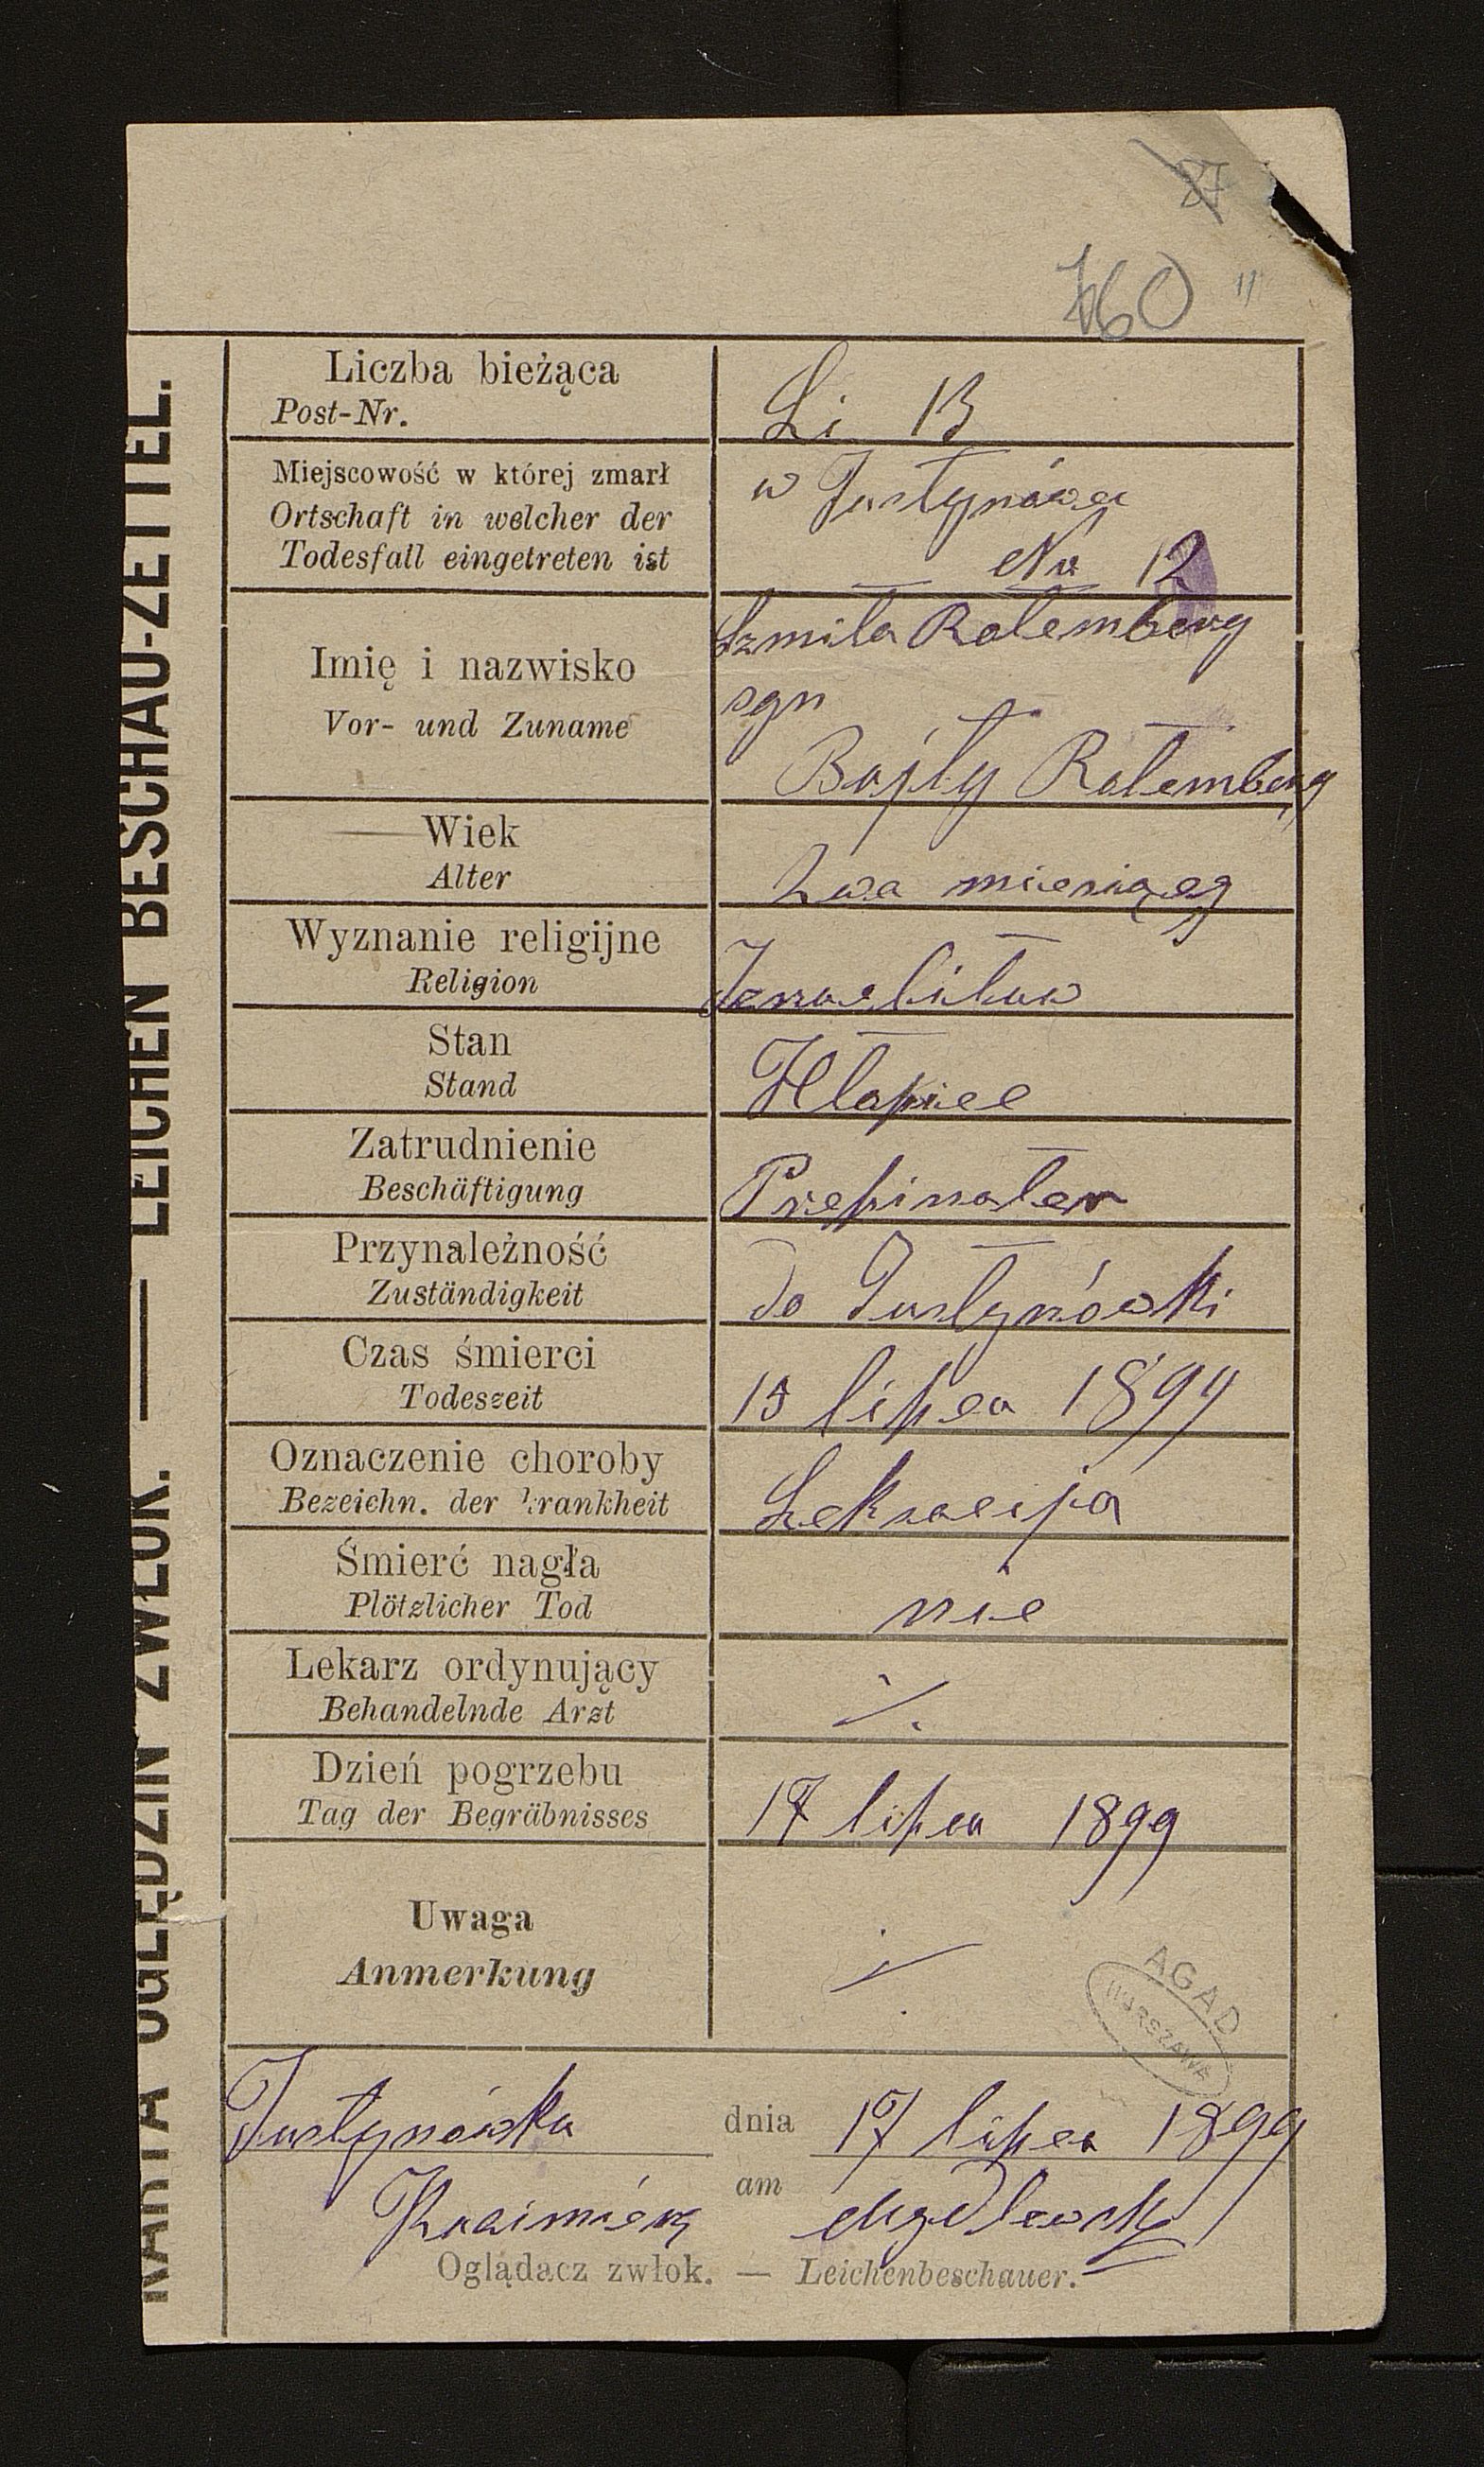 87
160 "
KARTA OGLĘDZIN ZWŁOK. — LEICHEN BESCHAU-ZETTEL.
Liczba bieżąca
Post-Nr.
Li 13
Miejscowość w której zmarł
Ortschaft in welcher der
Todesfall eingetreten ist
w Justynówce
No 12
Imię i nazwisko
Vor- und Zuname
Szmila Rotemberg
syn
Bajły Rotemberg
Wiek
Alter
Dwa miesiący
Wyznanie religijne
Religion
Izraelitów
Stan
Stand
Hłapiec
Zatrudnienie
Beschäftigung
Prepinator
Przynależność
Zuständigkeit
do Justynówki
Czas śmierci
Todeszeit
15 lipca 1899
Oznaczenie choroby
Bezeichn. der krankheit
Śmierć nagła
Plötzlicher Tod
nie
Lekarz ordynujący
Behandelnde Arzt
Dzień pogrzebu
Tag der Begräbnisses
17 lipca 1899
Uwaga
Anmerkung
AGAD
WARSZAWA
Justynówka dnia 17 lipca 1899
am
Kazimierz
Oglądacz zwłok. — Leichenbeschauer.